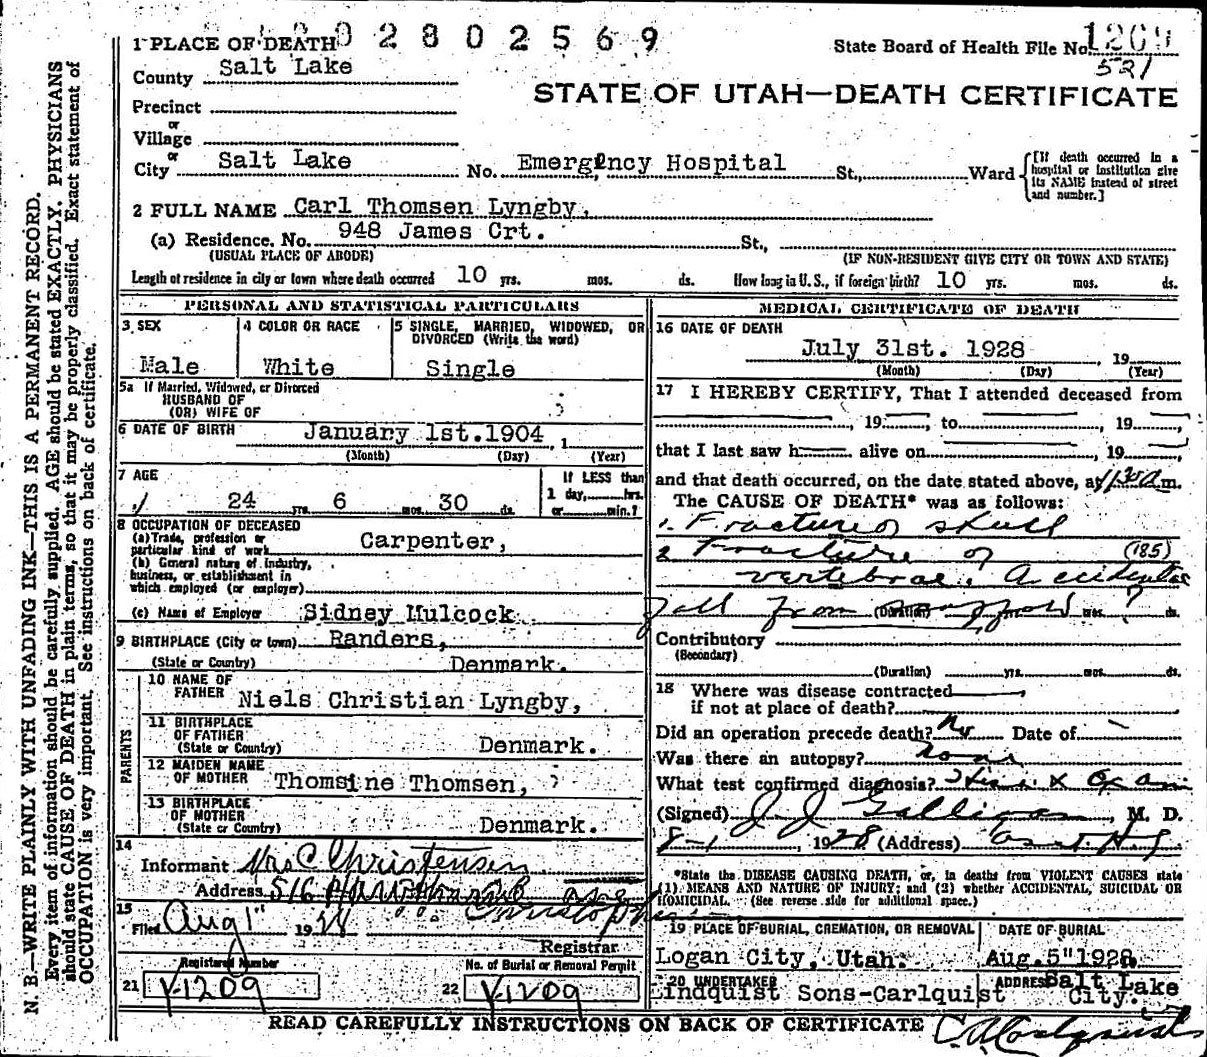 2802569
State Board of Health File No. 1209
521
1 PLACE OF DEATH
County Salt Lake
STATE OF UTAH—DEATH CERTIFICATE
Precinct
or
Village
or
City Salt Lake No. Emergincy Hospital St., Ward [If death occurred in a hospital or institution give its NAME instead of street and number.]
2 FULL NAME Carl Thomsen Lyngby,
(a) Residence. No. 948 James Crt. St.,
(USUAL PLACE OF ABODE) (IF NON-RESIDENT GIVE CITY OR TOWN AND STATE)
Length of residence in city or town where death occurred 10 yrs. mos. ds. How long in U. S., if foreign birth? 10 yrs. mos. ds.
PERSONAL AND STATISTICAL PARTICULARS
3 SEX
Male
4 COLOR OR RACE
White
5 SINGLE, MARRIED, WIDOWED, OR
DIVORCED (Write the word)
Single
5a If Married, Widowed, or Divorced
HUSBAND OF
(OR) WIFE OF
6 DATE OF BIRTH January 1st.1904, 1
(Month) (Day) (Year)
7 AGE
24 yrs. 6 mos. 30 ds.
If LESS than
1 day, hrs.
or min.?
8 OCCUPATION OF DECEASED
(a) Trade, profession or
particular kind of work Carpenter,
(b) General nature of Industry,
business, or establishment in
which employed (or employer)
(c) Name of Employer Sidney Mulcock
9 BIRTHPLACE (City or town) Randers,
(State or Country) Denmark.
PARENTS
10 NAME OF
FATHER Niels Christian Lyngby,
11 BIRTHPLACE
OF FATHER
(State or Country) Denmark.
12 MAIDEN NAME
OF MOTHER Thomsine Thomsen,
13 BIRTHPLACE
OF MOTHER
(State or Country) Denmark.
14
Informant Mrs C Christensen
Address 516 Hawthorne ave
15
Filed Aug 1" 1928
Registrar
Registered Number
21 Y-1209
No. of Burial or Removal Permit
22 Y1209
MEDICAL CERTIFICATE OF DEATH
16 DATE OF DEATH
July 31st. 1928, 19
(Month) (Day) (Year)
17 I HEREBY CERTIFY, That I attended deceased from
, 19 , to , 19 ,
that I last saw h alive on , 19 ,
and that death occurred, on the date stated above, at 11 30 a m.
The CAUSE OF DEATH* was as follows:
1. Fracture of skull
2 Fracture of (185)
vertebrae. Accidental
fall from scaffold
(Duration) mos. ds.
Contributory
(Secondary)
(Duration) yrs. mos. ds.
18 Where was disease contracted
if not at place of death?
Did an operation precede death? No Date of
Was there an autopsy?
What test confirmed diagnosis?
(Signed) J. J. Galligan, M. D.
8-1, 1928 (Address)
*State the DISEASE CAUSING DEATH, or, in deaths from VIOLENT CAUSES state
(1) MEANS AND NATURE OF INJURY; and (2) whether ACCIDENTAL, SUICIDAL OR
HOMICIDAL. (See reverse side for additional space.)
19 PLACE OF BURIAL, CREMATION, OR REMOVAL
Logan City, Utah.
DATE OF BURIAL
Aug.5"1928,
20 UNDERTAKER
Lindquist Sons-Carlquist
ADDRESS Salt Lake
City.
READ CAREFULLY INSTRUCTIONS ON BACK OF CERTIFICATE
N. B—WRITE PLAINLY WITH UNFADING INK—THIS IS A PERMANENT RECORD.
Every item of information should be carefully supplied. AGE should be stated EXACTLY. PHYSICIANS
should state CAUSE OF DEATH in plain terms, so that it may be properly classified. Exact statement of
OCCUPATION is very important. See instructions on back of certificate.